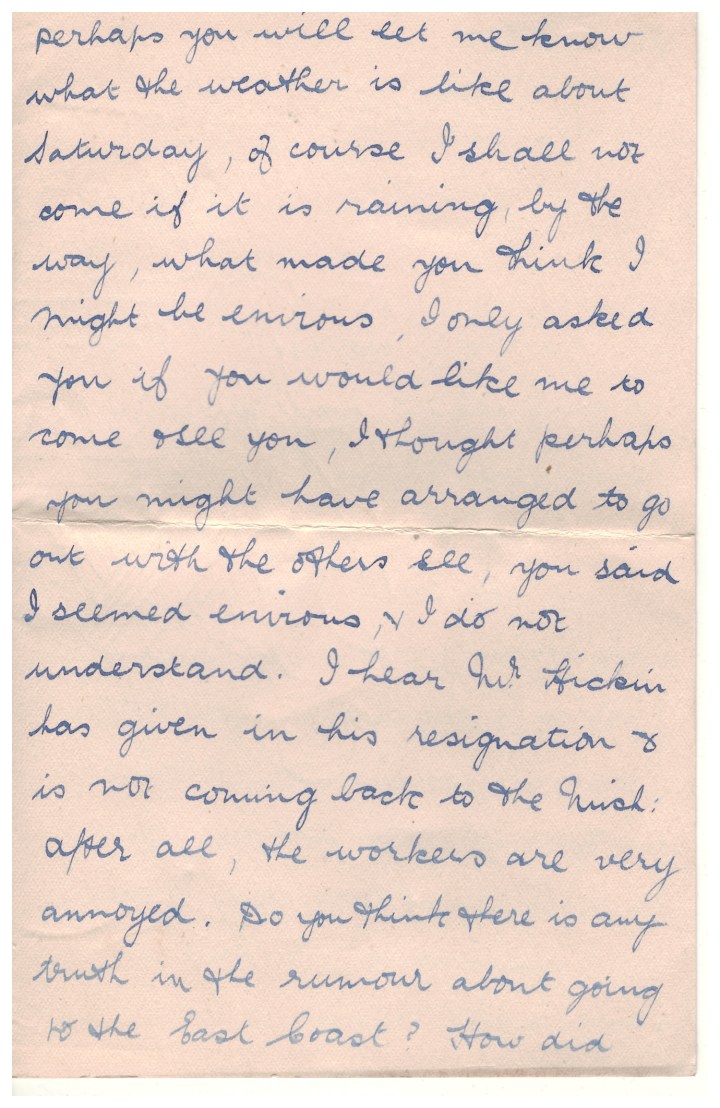 perhaps you will let me know
what the weather is like about
Saturday, of course I shall not
come if it is raining, by the
way, what made you think I
might be enirous, I only asked
you if you would like me to
come & see you, I thought perhaps
you might have arranged to go
out with the others see, you said
I seemed enirous, & I do not
understand. I hear Mr Hickin
has given in his resignation &
is not coming back to the Mish:
after all, the workers are very
annoyed. Do you think there is any
truth in the rumour about going
to the East Coast? How did